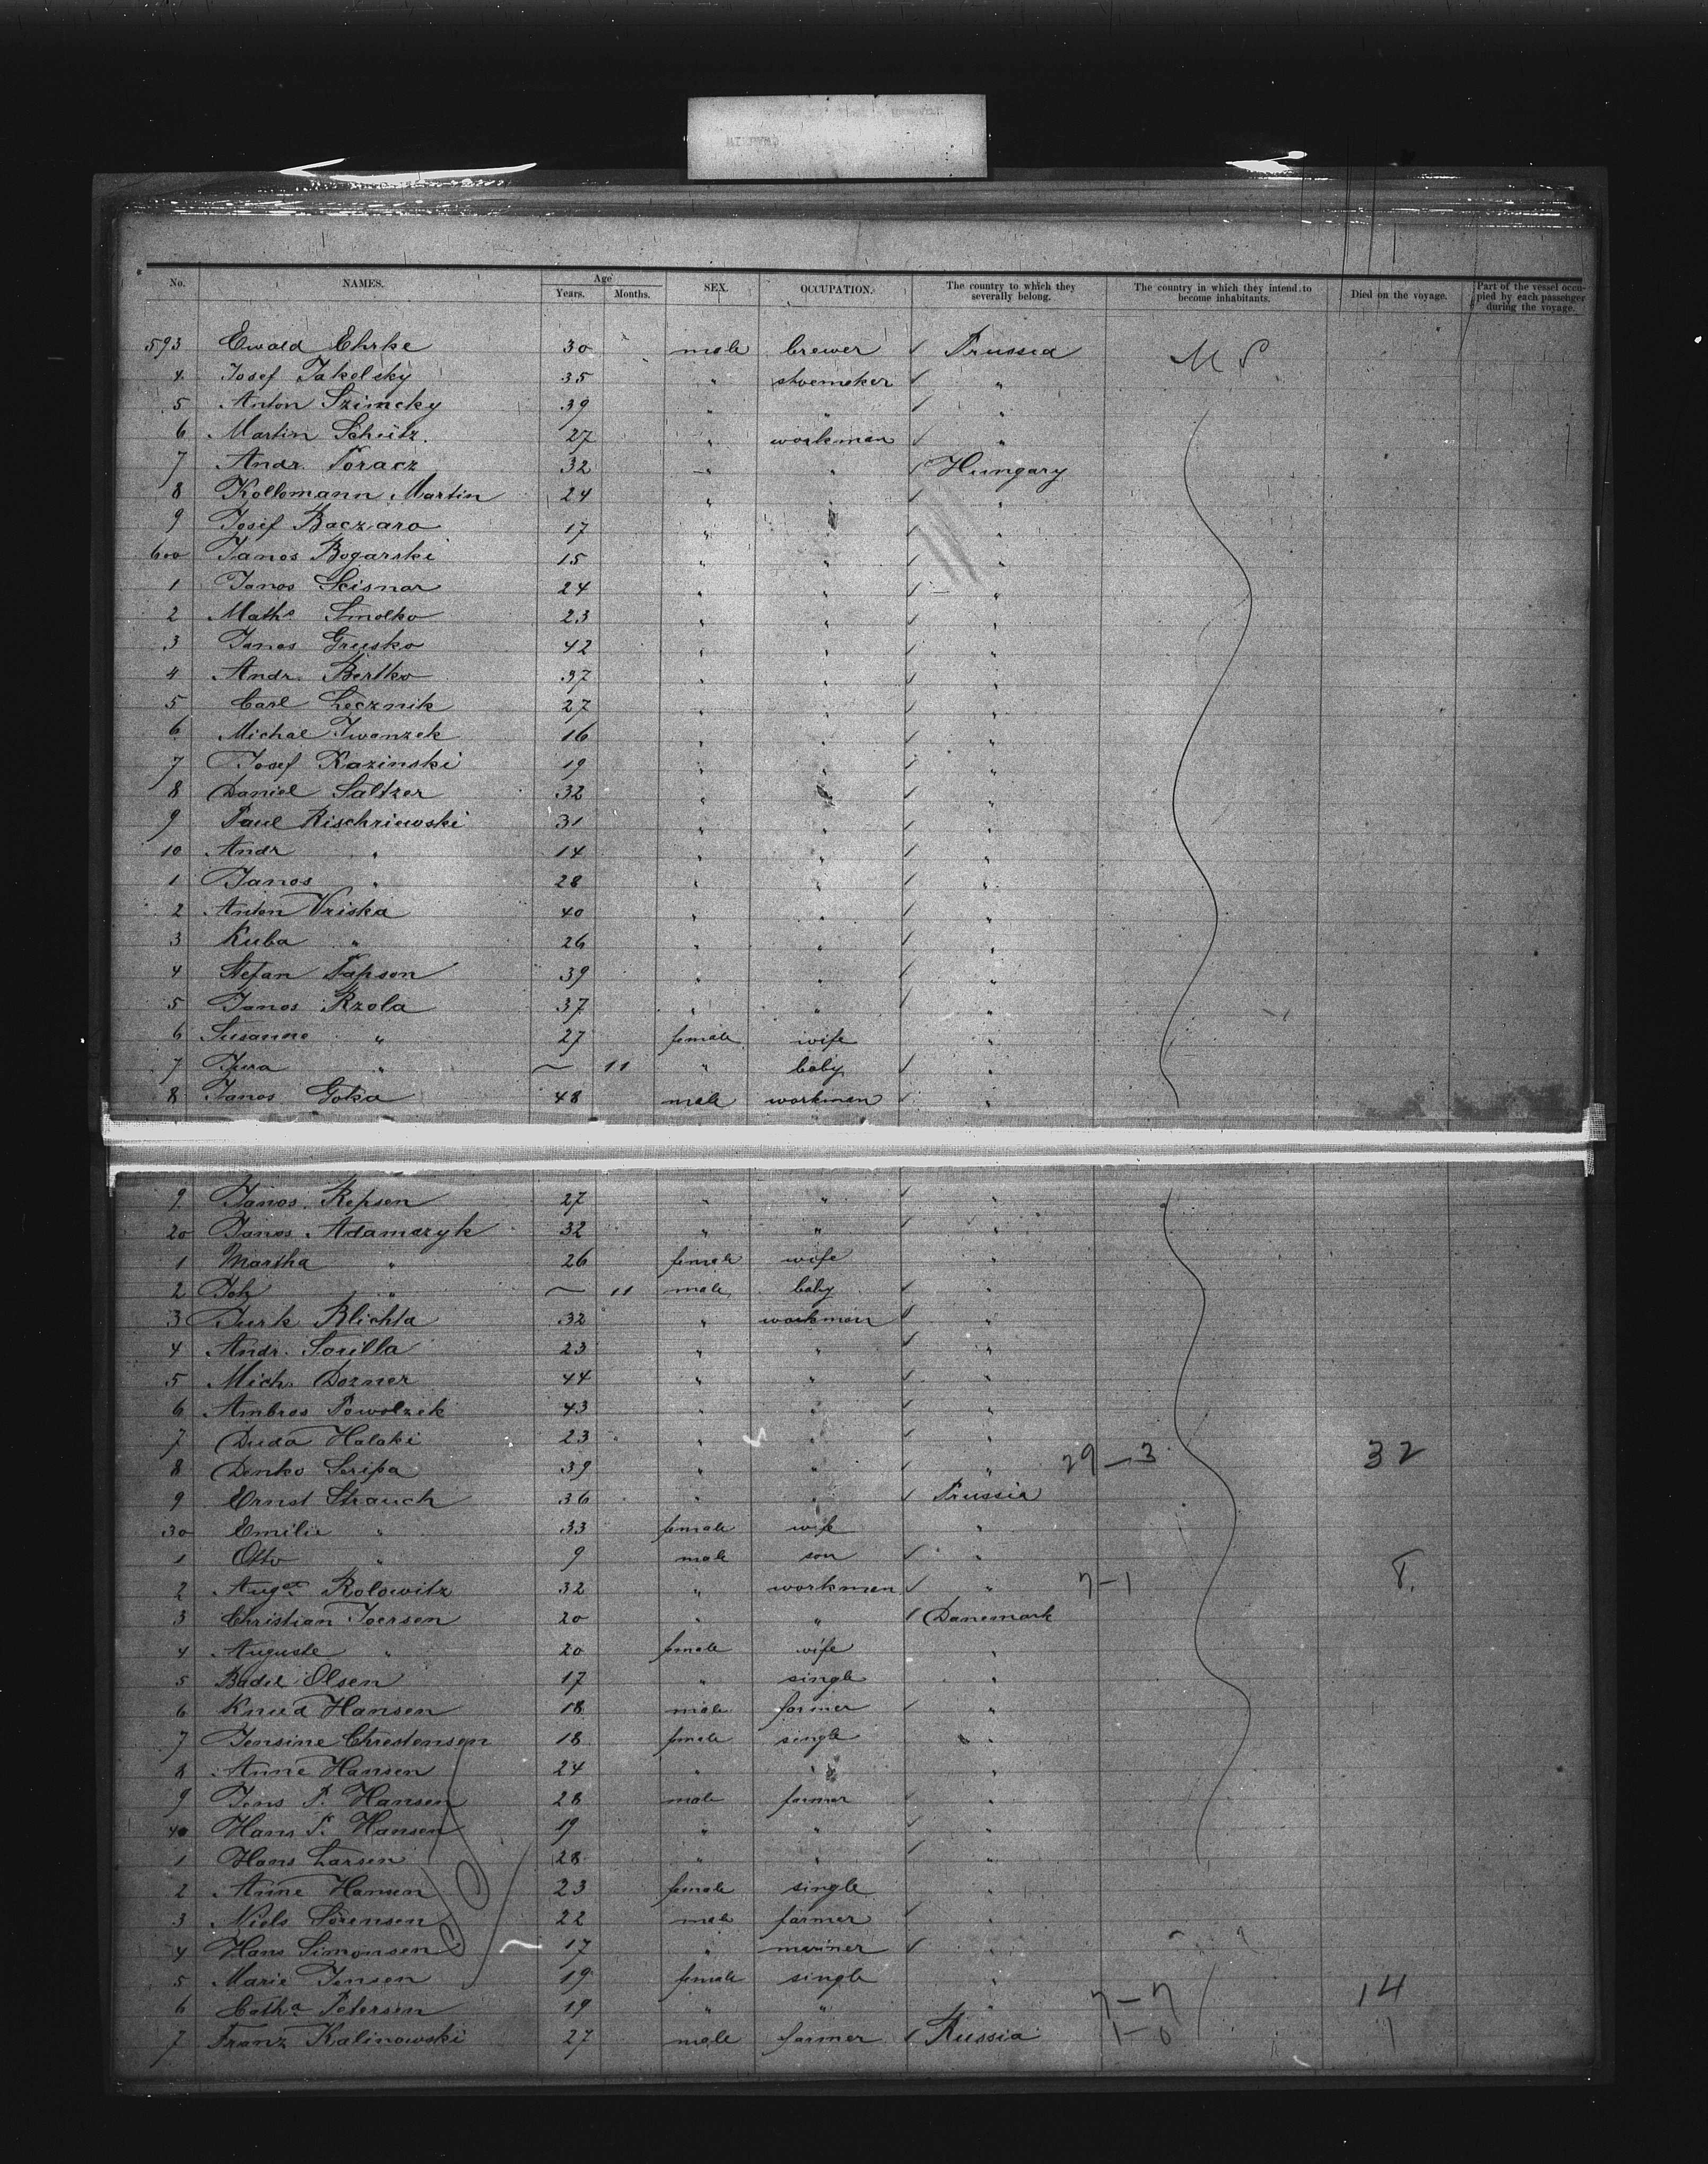 No. NAMES. Age Years. Months. SEX. OCCUPATION. The country to which they severally belong. The country in which they intend to become inhabitants. Died on the voyage. Part of the vessel occupied by each passenger during the voyage.
593 Ewald Ehrke 30 male brewer ✓ Prussia U S
4 Josef Jakelsky 35 " shoemaker ✓ "
5 Anton Szimcky 39 " " ✓ "
6 Martin Schütz 27 " workman ✓ "
7 Andr. Poracz 32 " " ✓ Hungary
8 Kollomann Martin 24 " " ✓ "
9 Josef Baczaro 17 " " ✓ "
600 Janos Bogarski 15 " " ✓ "
1 Janos Scisnar 24 " " ✓ "
2 Maths Smolko 23 " " ✓ "
3 Janos Grusko 42 " " ✓ "
4 Andr. Bertko 37 " " ✓ "
5 Carl Lecznik 27 " " ✓ "
6 Michal Iwanzek 16 " " ✓ "
7 Josef Kazinski 19 " " ✓ "
8 Daniel Saltzer 32 " " ✓ "
9 Paul Rischriewski 31 " " ✓ "
10 Andr " 14 " " ✓ "
1 Janos " 28 " " ✓ "
2 Anton Vriska 40 " " ✓ "
3 Kuba " 26 " " ✓ "
4 Stefan Papson 39 " " ✓ "
5 Janos Rzola 37 " " ✓ "
6 Susanne " 27 female wife "
7 Jura " ~ 11 " baby ✓ "
8 Janos Goka 48 male workman ✓ "
9 Janos Repsen 27 " " ✓ "
20 Janos Adamczyk 32 " " ✓ "
1 Martha " 26 female wife "
2 " ~ 11 male baby ✓ "
3 Jurk Blichta 32 " workman ✓ "
4 Andr. Sorilla 23 " " ✓ "
5 Mich. Dozner 44 " " ✓ "
6 Ambros Powolzek 43 " " ✓ "
7 Duda Halaki 23 " " ✓ "
8 Denko Seripa 39 " " ✓ " 29-3 32
9 Ernst Strauch 36 " " ✓ Prussia
30 Emilie " 33 female wife "
1 Otto " 9 male son ✓ "
2 Augst Rolowitz 32 " workman ✓ " 7-1 8.
3 Christian Joersen 20 " " ✓ Danemark
4 Auguste " 20 female wife "
5 Bodil Olsen 17 " single "
6 Knud Hansen 18 male farmer ✓ "
7 Jensine Christensen 18 female single "
8 Anne Hansen 24 " " "
9 Jens P. Hansen 28 male farmer ✓ "
40 Hans P. Hansen 19 " " ✓ "
1 Hans Larsen 28 " " ✓ "
2 Anne Hansen 23 female single "
3 Niels Sörensen 22 male farmer ✓ "
4 Hans Simonsen 17 " mariner ✓ "
5 Marie Jensen 19 female single "
6 Catha Petersen 19 " " " 7-7 14
7 Franz Kalinowski 27 male farmer ✓ Russia 1-0 1